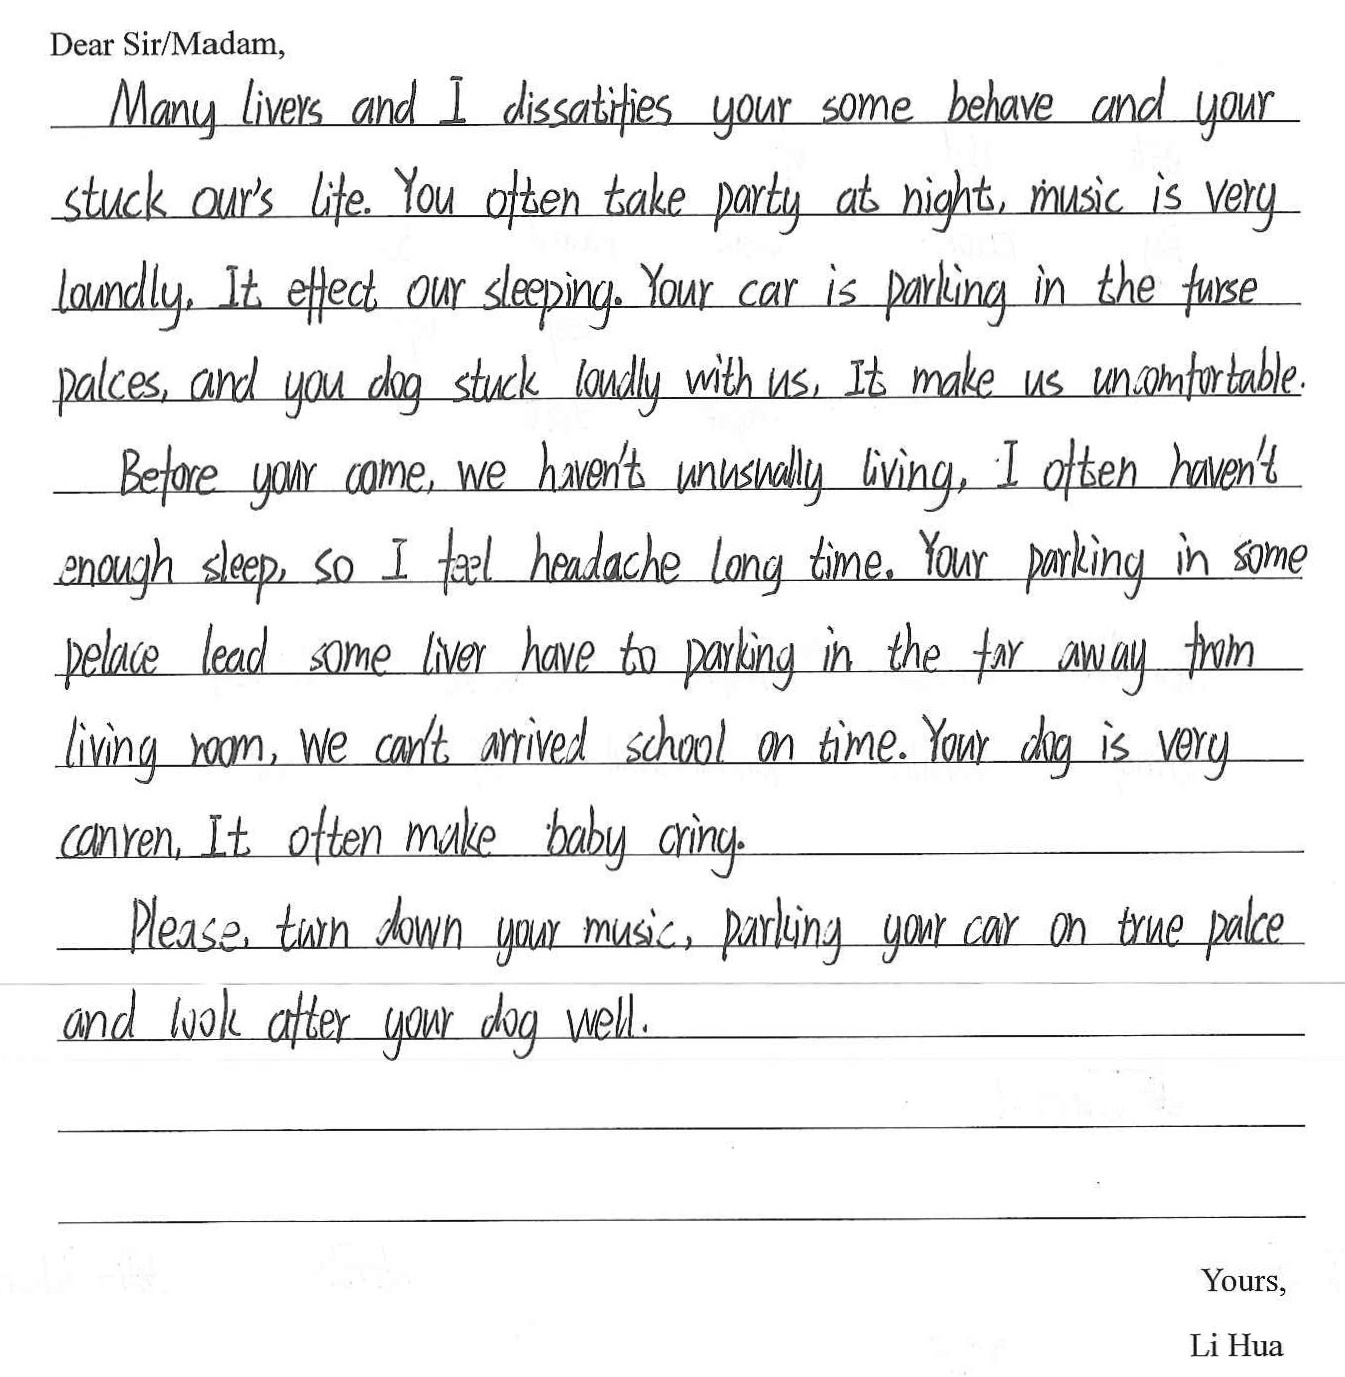 Dear Sir/Madam,
Many livers and I dissatifies your some behave and your
stuck our's life. You often take party at night, music is very
loundly, It effect our sleeping. Your car is parking in the furse
palces, and you dog stuck loudly with us, It make us uncomfortable.
Before your come, we haven't unusually living, I often haven't
enough sleep, so I feel headache long time. Your parking in some
pelace lead some liver have to parking in the far away from
living room, We can't arrived school on time. Your dog is very
canren, It often make baby cring.
Please, turn down your music, parking your car on true palce
and look after your dog well.
Yours,
Li Hua